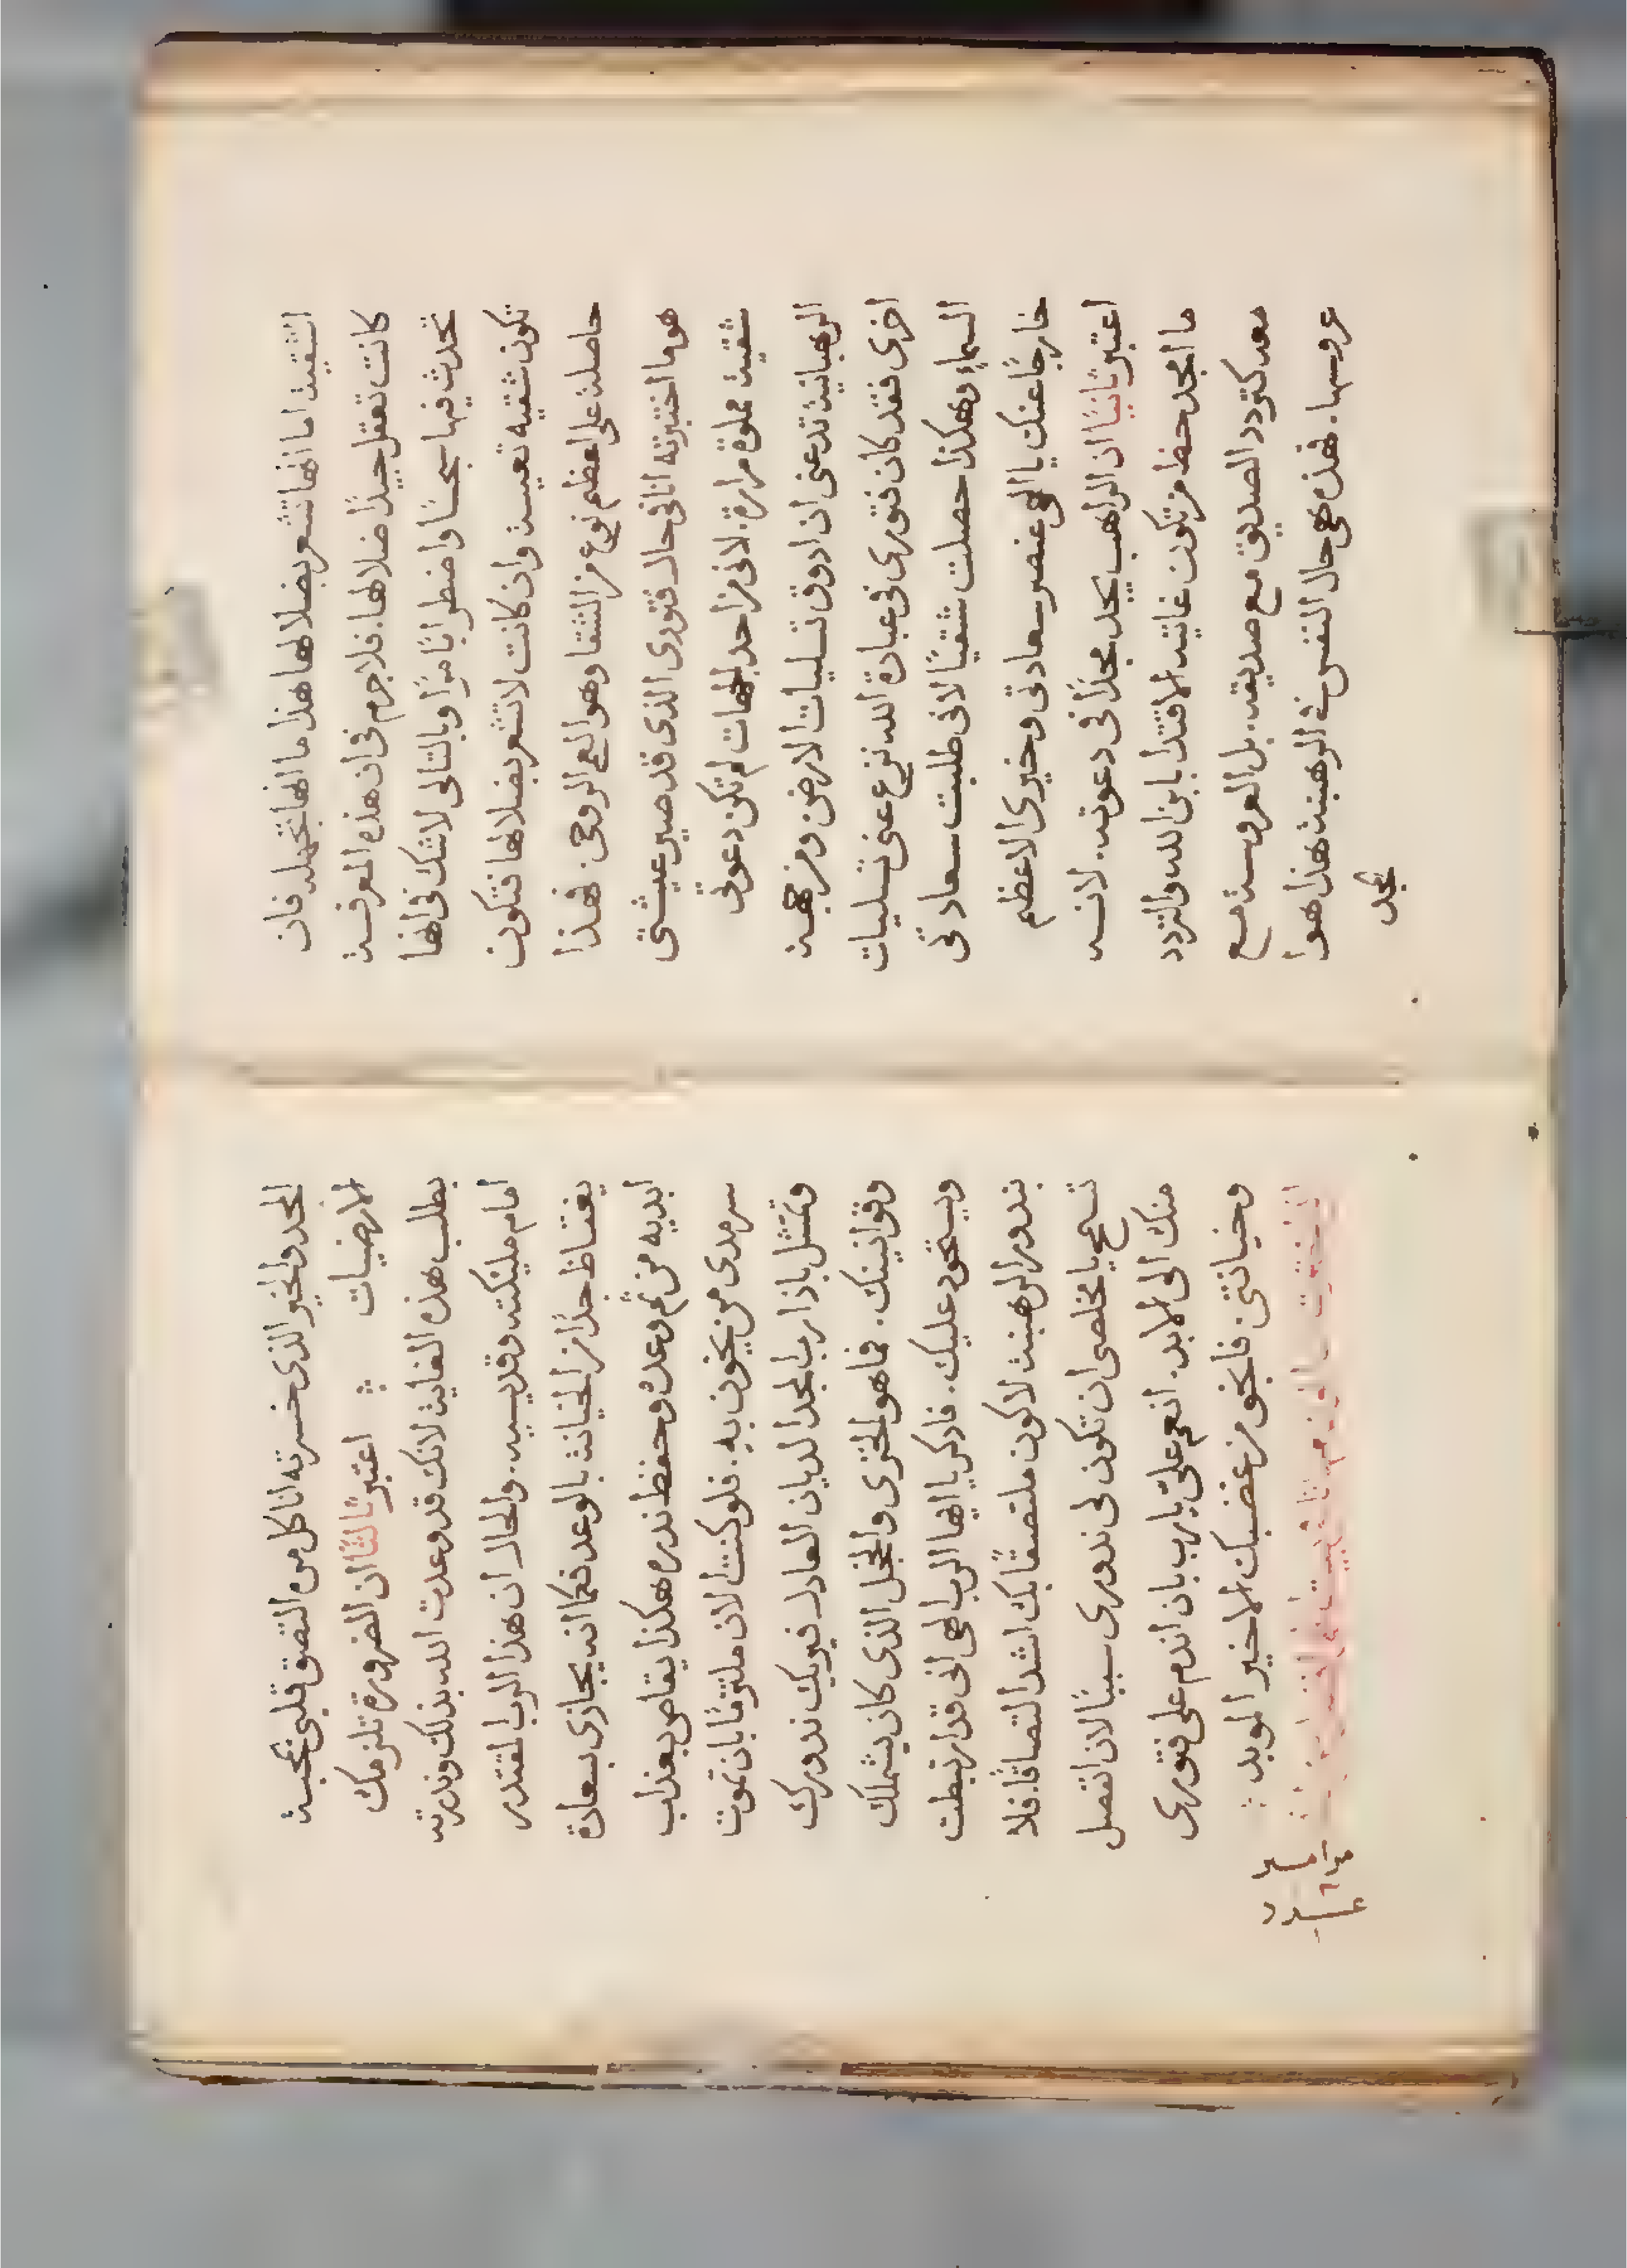 الشقيه اما انها تشعر بضلالها هذا ما انها تجهله فان
كانت تعقل جيدًا ضلالها. فلا جرم في ان هذه المعرفة
تحدث فيها سجسًا واضطرابًا مرًا وبالتالي لا شك في انها
تكون شقيه تعيسه وان كانت لا تشعر بضلالها فتكون
حاصله على اعظم نوع من الشقا وهو العمى الروحي. فهذا
هو ما اختبرته انا في حال فتوري الذي قد صير عيشتي
شقيه مملوة مرارة. لاني من احد الجهات لم تكن دعوتي
الرهبانيه تدعني ان ادوق تسليات الارض ومن جهة
اخرى فقد كان فتوري في عبادة الله نزع عني تسليات
السماء وهكذا حصلت شقيًا لاني طلبت سعادتي
خارجًا عنك يا الهي عنصر سعادتي وخيري الاعظم
اعتبر ثانيًا ان الراهب يجد مجدًا في دعوته. لانه
ما امجد حظ من تكون غايته الاقتدا بابن الله والتردد
معه كتردد الصديق مع صديقه. بل العروسة مع
عروسها. فهذه هي حال النفس في الرهبنه هذا هوا
مجد
المجد والخير الذي خسرته انا كل من التصق قلبي بمحبة
الارضيات ؞ اعتبر ثالثًا ان الضرورة تلزمك
بطلب هذه الغايه لانك قد وعدت الله بذلك وندرته
امام مليكته وقديسيه. والحال ان هذا الرب المقتدر
يغتاظ جدًا من الخيانه بالوعد فكما انه يجازي بسعادة
ابديه من تمم وعده وحفظ ندره هكذا يقاص بعذاب
سرمدى من يخون به. فلو كنت الان ملتزمًا بان تموت
وتمتثل باذا رب المجد الديان العادل فيريك ندورك
وقوانينك. فما هو الخزى والخجل الذى كان يشملك
ويستحوذ عليك. فاذكر يا ايها الرب الهى انى قد ارتبطت
بندور الرهبنه لاكون ملتصقًا بك اشد التصاقًا. فلا
تسمح يا مخلصى ان تكون لى ندورى سببًا لان انفصل
منك الى الابد. انعم علىّ يا رب بان اندم على فتورى
وخيانتى فانجو من غضبك الاخير الموبد ؞